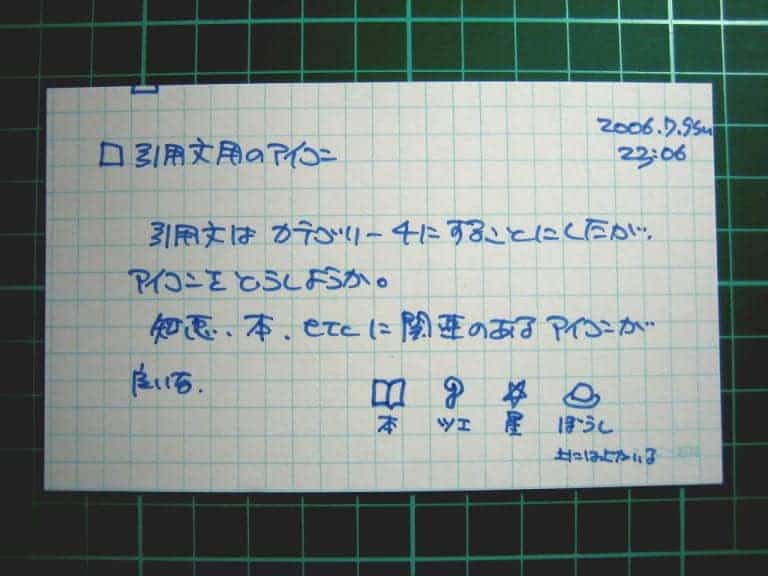 2006.7.9su
23:06
□ 引用文用のアイコン
引用文は カテゴリー4にすることにしたが、
アイコンをどうしようか。
知恵、本、etcに関連のあるアイコンが
良いな。
本 ツエ 星 ぼうし